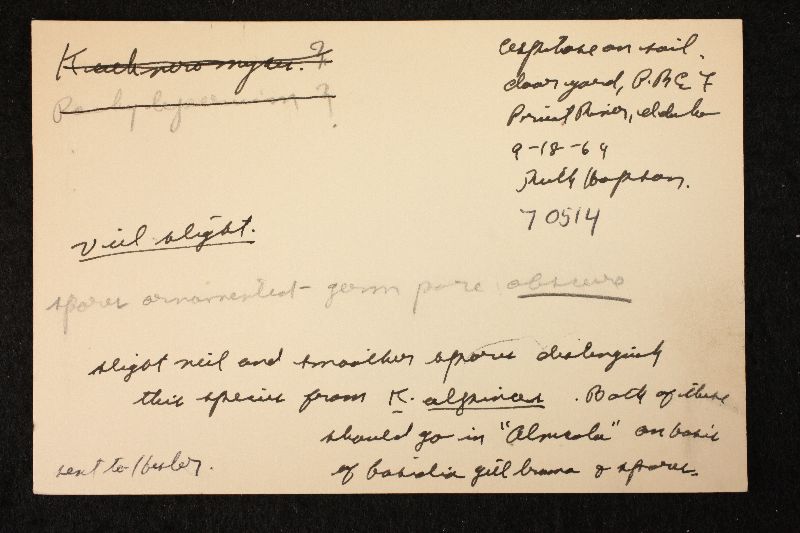 Kuehneromyces. ?
cespitose on soil.
door yard, P.R.E F
Priest River, Idaho
9-18-69
Ruth Hopson.
70514
Veil slight.
spores ornamented - germ pore obscure
slight veil and smoother spores distinguish
this species from K. alpinus. Both of these
should go in "Alnicola" on basis
of basidia gill trama & spores.
sent to Hesler.